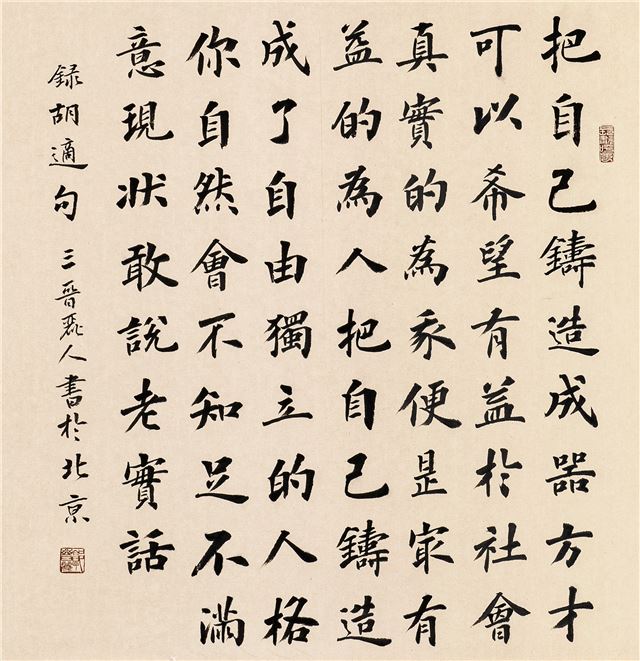 把自己鑄造成器方才
可以希望有益於社會
真實的為我便是最有
益的為人把自己鑄造
成了自由獨立的人格
你自然會不知足不滿
意現狀敢說老實話
錄胡適句 三晉人書於北京